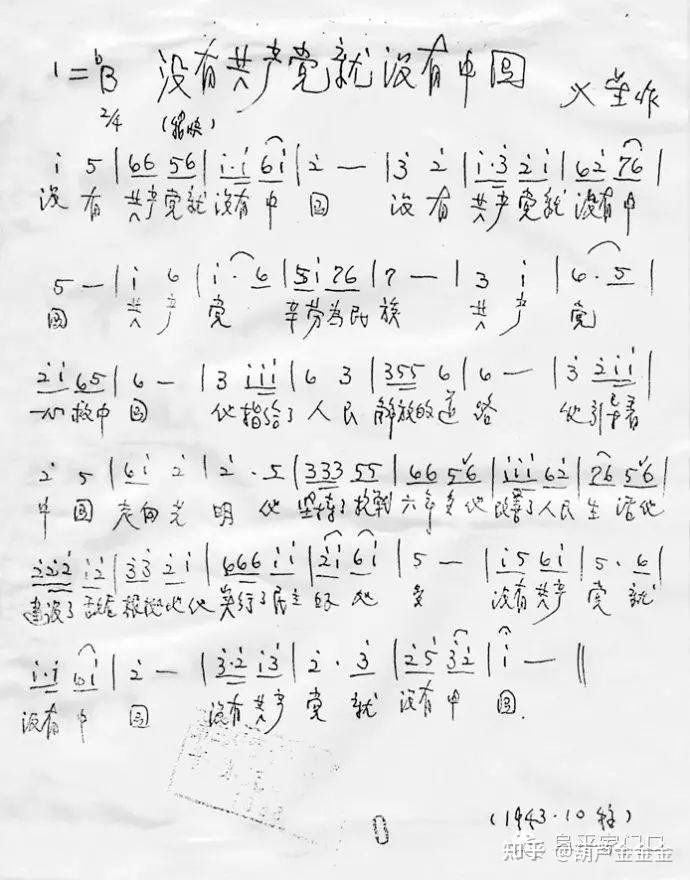 1=♭B 没有共产党就没有中国 火星作
2/4 (稍快)
i 5 | 66 56 | i·i 6i | 2̇ — | 3̇ 2̇ | i·3̇ 2̇i | 62̇ 76 |
没有共产党就没有中国 没有共产党就没有中
5 — | i 6 | i·6 | 5i 76 | 7 — | 3 i | 6·5 |
国 共产党 辛劳为民族 共产党
2̇i 65 | 6 — | 3 iii | 6 3 | 355 6 | 6 — | 3̇ 2̇ii |
一心救中国 他指给了人民解放的道路 他引导着
2̇ 5 | 6i 2̇ | 2̇·5 | 333 55 | 66 56 | iii 62̇ | 76 56 |
中国走向光明 他坚持了抗战六年多他改善了人民生活他
2̇2̇2̇ i2̇ | 3̇3̇ 2̇i | 666 ii | 2̇i 6i | 5 — | i5 6i | 5·6 |
建设了敌后根据地他实行了民主好处多 没有共产党就
i·i 6i | 2̇ — | 3̇·2̇ i3̇ | 2̇·3̇ | 2̇5 3̇2̇ | i — ‖
没有中国 没有共产党就没有中国.
(1943·10 )
阜平家门口
知乎 @葫芦金金金